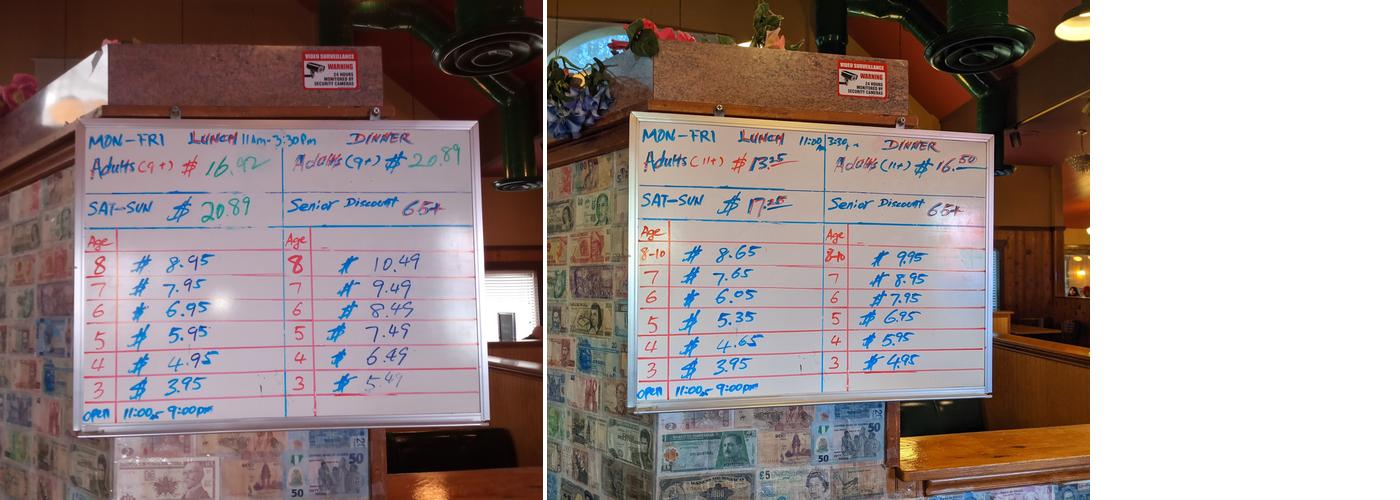 VIDEO SURVEILLANCE
WARNING
24 HOURS
MONITORED BY
SECURITY CAMERAS
MON-FRI LUNCH 11Am-3:30Pm DINNER
Adults (9+) $ 16.92 Adults (9+) $ 20.89
SAT-SUN $ 20.89 Senior Discount 65+
Age Age
8 $ 8.95 8 $ 10.49
7 $ 7.95 7 $ 9.49
6 $ 6.95 6 $ 8.49
5 $ 5.95 5 $ 7.49
4 $ 4.95 4 $ 6.49
3 $ 3.95 3 $ 5.49
OPEN 11:00 9:00pm
50
50
VIDEO SURVEILLANCE
WARNING
24 HOURS
MONITORED BY
SECURITY CAMERAS
MON-FRI LUNCH 11:00 3:30 DINNER
Adults (11+) $ 13.25 Adults (11+) $ 16.50
SAT-SUN $ 17.25 Senior Discount 65+
Age Age
8-10 $ 8.65 8-10 $ 9.95
7 $ 7.65 7 $ 8.95
6 $ 6.05 6 $ 7.95
5 $ 5.35 5 $ 6.95
4 $ 4.65 4 $ 5.95
3 $ 3.95 3 $ 4.95
OPEN 11:00 9:00pm
50
£5
50